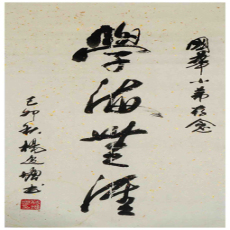 國華小弟存念
學海無涯
己卯秋楊
書